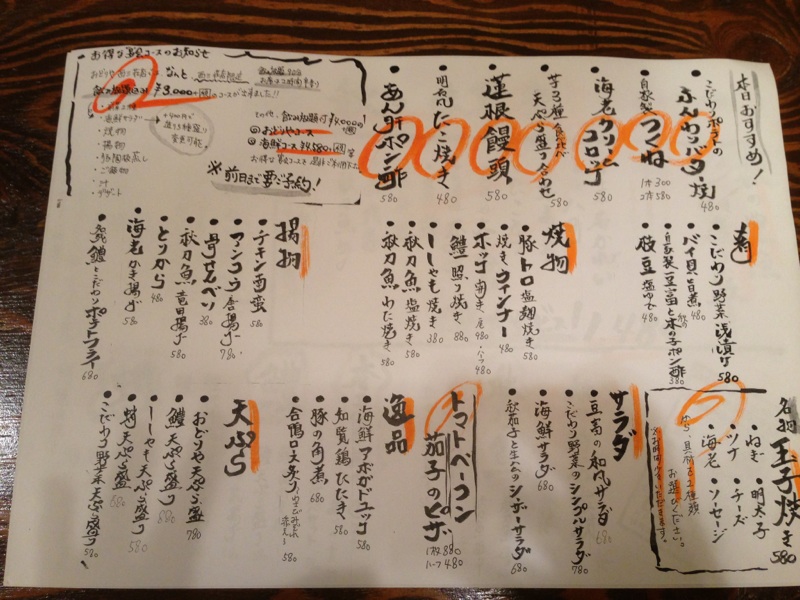 本日おすすめ!
・こだわりポテトの
ふんわりバター焼 480
・自家製つくね 1本300
2本580
・海老クリーム
コロッケ 580
・芋3種食べ比べ
天ぷら盛り合わせ 580
・蓮根饅頭 580
・明太たこ焼き 480
・あん肝ポン酢 580
お得な宴会コースのお知らせ
なんと
¥3,000
のコースが出来ました!!
・焼物
・揚物
・ご飯物
・汁
・デザート
+400円で
変更可能
その他、飲み放題付¥4,000
◎おどりやコース
◎海鮮コース¥4,580
※前日まで要ご予約!
・こだわり野菜浅漬け 580
・バイ貝旨煮 480
・自家製豆富と木の子ポン酢 380
・枝豆塩ゆで 480
焼物
・豚トロ塩麹焼き 580
・焼きウィンナー 480
・ホッケ開き
・鱧照り焼き 880
・ししゃも焼き 380
・秋刀魚塩焼き 580
・秋刀魚わた焼き 580
揚物
・チキン南蛮 580
・アンコウ唐揚げ 780
・骨せんべい 380
・秋刀魚竜田揚げ 580
・とりから 480
・海老かき揚げ 580
・鱧とこだわりポテトフライ 680
名物 玉子焼き 580
・ねぎ ・明太子
・ツナ ・チーズ
・海老 ・ソーセージ
サラダ
・豆富の和風サラダ 680
・こだわり野菜のシンプルサラダ 780
・海鮮サラダ 680
・秋茄子と生ハムのシーザーサラダ 680
トマトベーコン
茄子のピザ 1枚880
ハーフ480
逸品
・海鮮アボガドユッケ 580
・知覧鶏たたき 580
・豚の角煮 680
・合鴨ロース炙り 580
天ぷら
・おどりや天ぷら盛 780
・鱧天ぷら盛り 880
・ししゃも天ぷら盛り 580
・蛸天ぷら盛り 580
・こだわり野菜天ぷら盛り 580